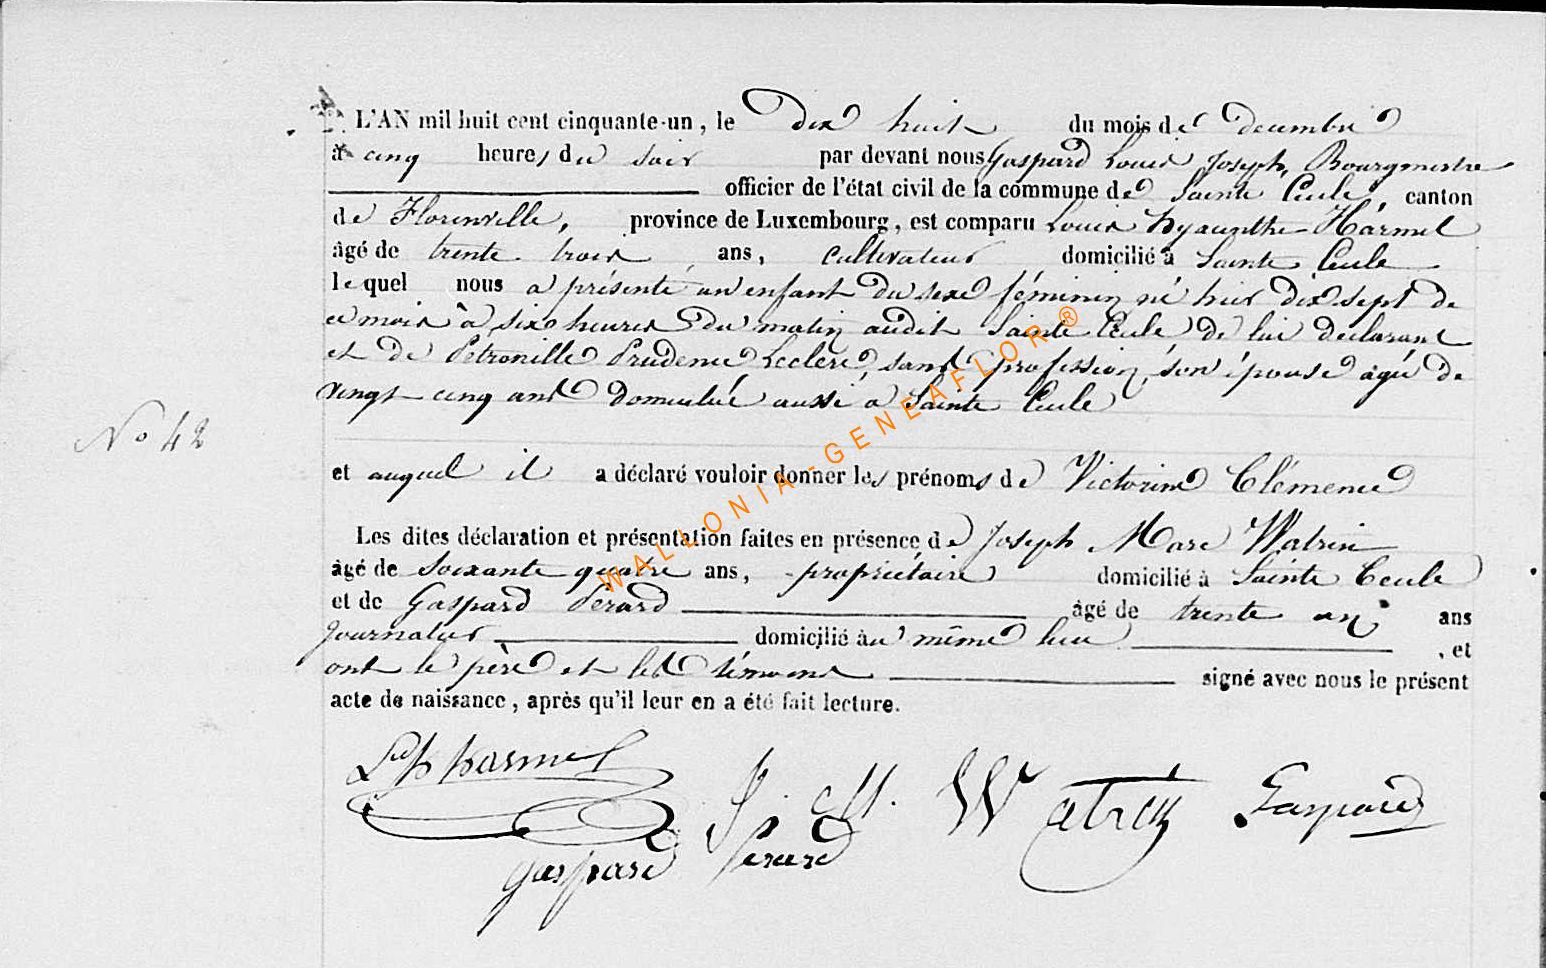 L'AN mil huit cent cinquante-un, le dix huit du mois de decembre
à cinq heures du soir par devant nous Gaspard Louis Joseph, Bourgmestre
officier de l'état civil de la commune de Sainte Cecile, canton
de Florenville, province de Luxembourg, est comparu Louis hyacinthe Harmel
âgé de trente trois ans, cultivateur domicilié à Sainte Cecile
lequel nous a présenté un enfant du sexe féminin né hier dix sept de
ce mois à six heures du matin audit Sainte Cecile de lui déclarant
et de Pétronille Prudence Leclere, sans profession, son épouse agée de
vingt cinq ans domiciliée aussi à Sainte Cecile
No 42
et auquel il a déclaré vouloir donner les prénoms de Victorine Clémence
Les dites déclaration et présentation faites en présence de Joseph Marc Watrin
âgé de Soixante quatre ans, propriétaire domicilié à Sainte Cecile
et de Gaspard Perard âgé de trente un ans
Journalier domicilié au même lieu, et
ont le père et les témoins signé avec nous le présent
acte de naissance, après qu'il leur en a été fait lecture.
Lh harmel J. M. Watrin Gaspard
gaspard Perard
WALLONIA-GENEAFLOR®